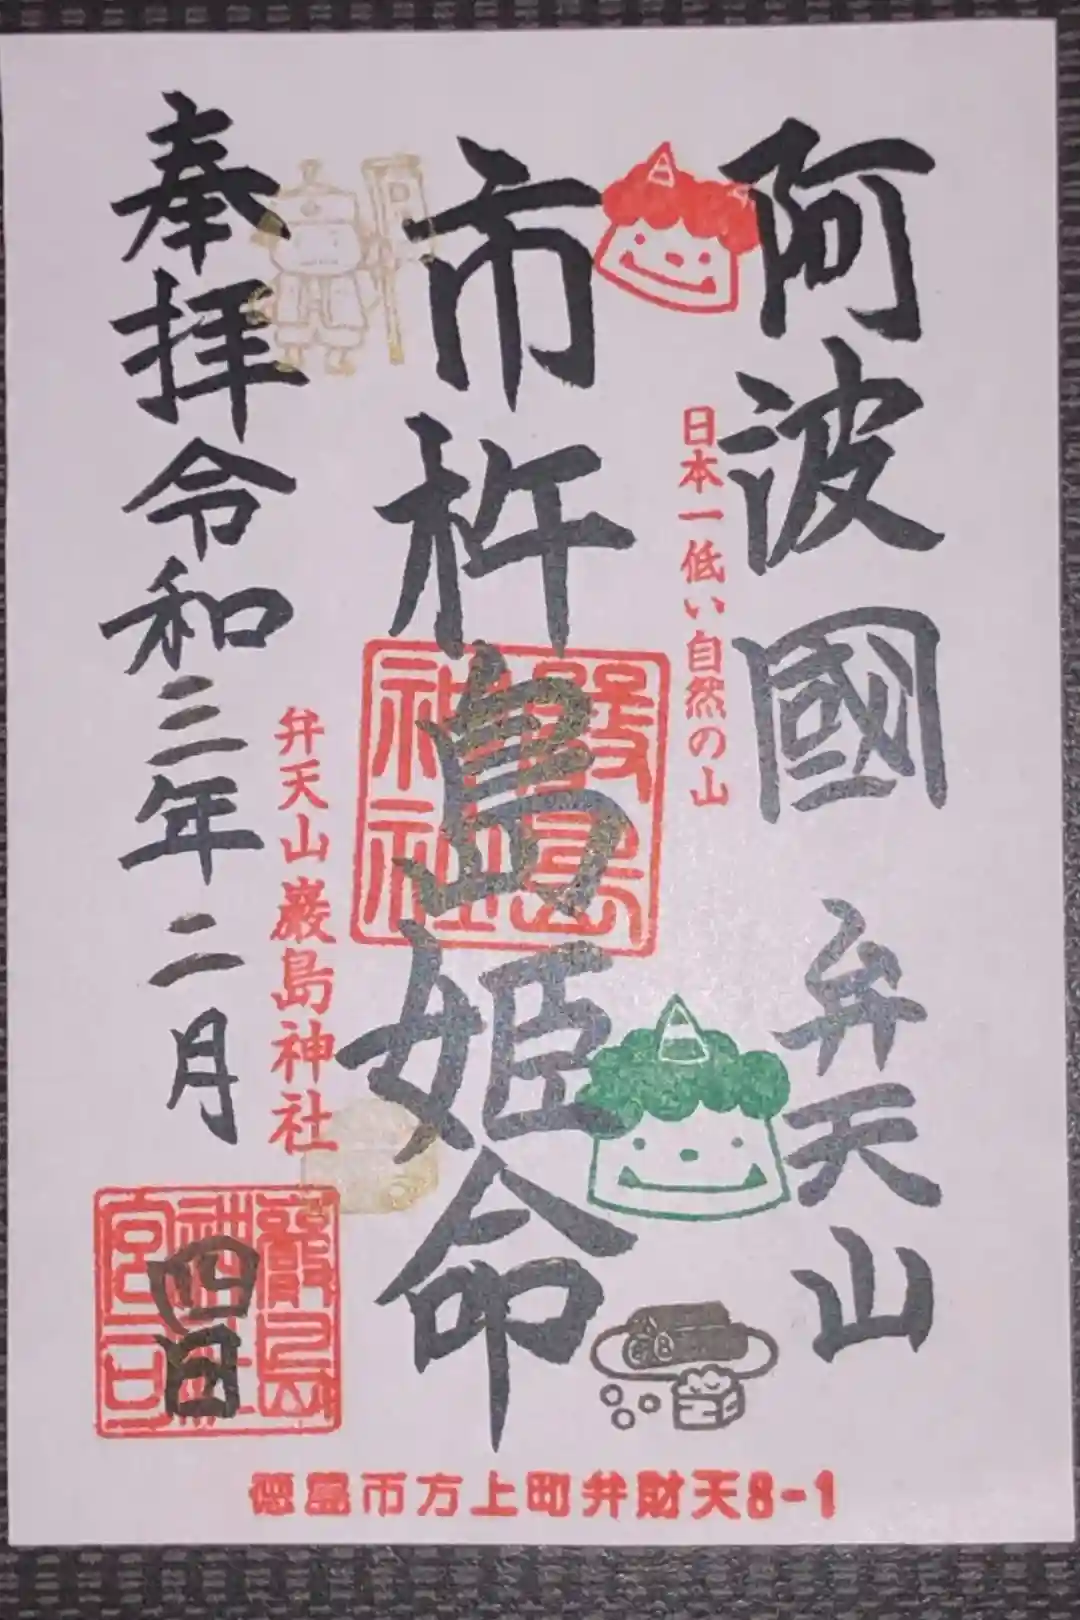 阿波國 弁天山
日本一低い自然の山
市杵島姫命
厳島神社
弁天山厳島神社
奉拝令和三年二月四日
徳島市方上町弁財天8-1